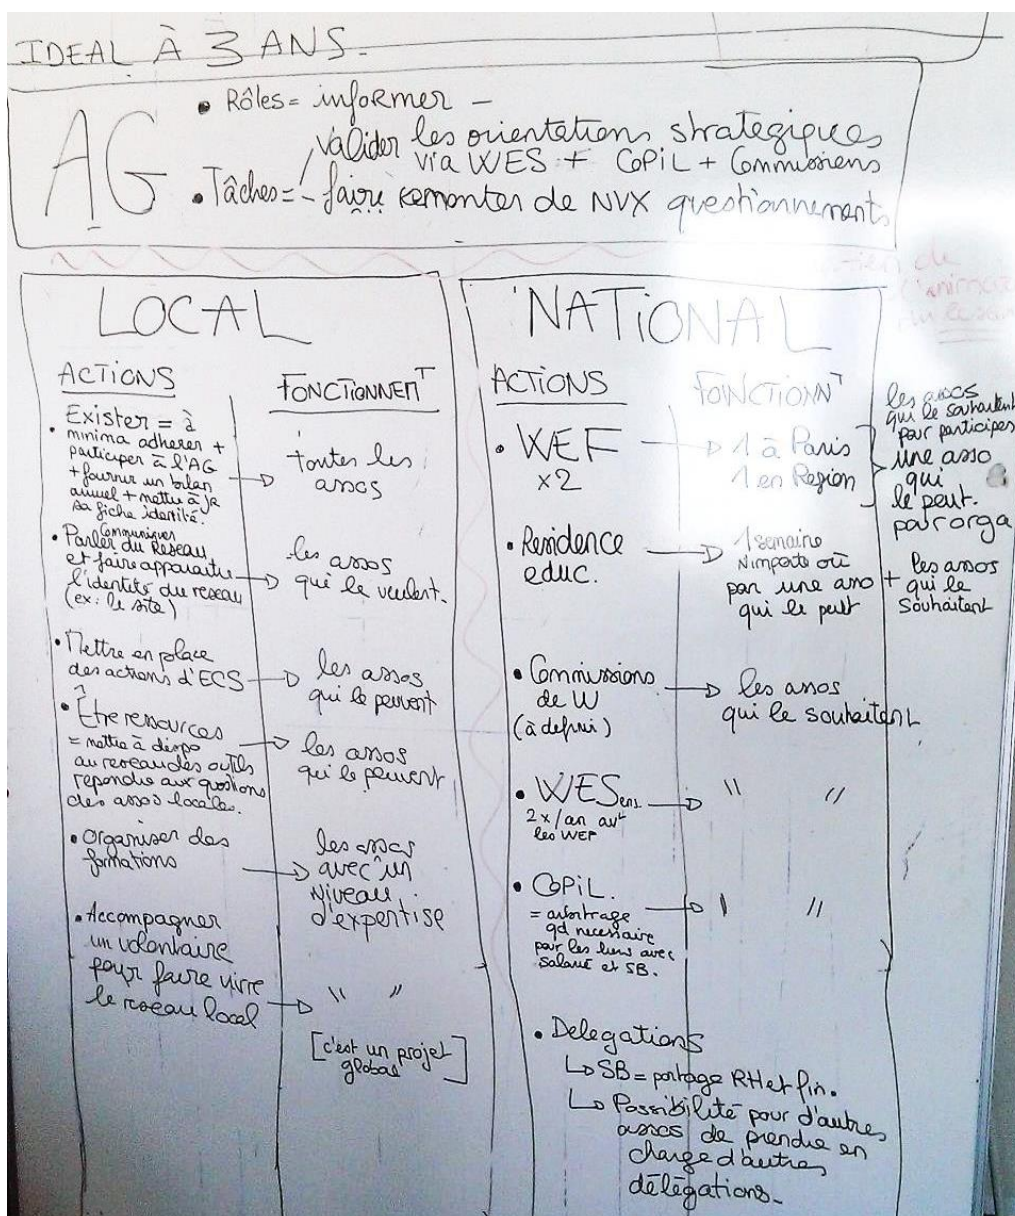 IDEAL À 3 ANS.
AG
• Rôles = informer -
valider les orientations strategiques
via WES + CoPiL + Commissions
• Tâches = - faire remonter de NVX questionnements
LOCAL
ACTIONS
FONCTIONNEMT
• Exister = à
minima adherer +
participer à l'AG
+ fournir un bilan
annuel + mettre à jr
sa fiche identité.
toutes les
assos
Communiquer
• Parler du Reseau
et faire apparaitre
l'identité du reseau
(ex: le site)
les assos
qui le veulent.
• Mettre en place
des actions d'ECS
les assos
qui le peuvent
• Être ressources
= mettre à dispo
au reseau des outils
repondre aux questions
des assos locales.
les assos
qui le peuvent
• Organiser des
formations
les assos
avec un
Niveau
d'expertise
• Accompagner
un volontaire
pour faire vivre
le reseau local
" "
[c'est un projet
global]
NATIONAL
ACTIONS
FONCTIONNT
• WEF
x2
1 à Paris
1 en Region
les assos
qui le souhaitent
pour participer
une asso
qui
le peut.
pour orga
• Residence
educ.
1 semaine
N'importe où
par une asso
qui le peut
+ les assos
qui le
souhaitent
• Commissions
de W
(à definir)
les assos
qui le souhaitent
• WES
2x/an avt
les WEF
" "
• CoPiL.
= arbitrage
qd necessaire
pour les liens avec
salarié et SB.
" "
• Delegations
↳ SB = portage RH et fin.
↳ Possibilité pour d'autres
assos de prendre en
charge d'autres
délégations.